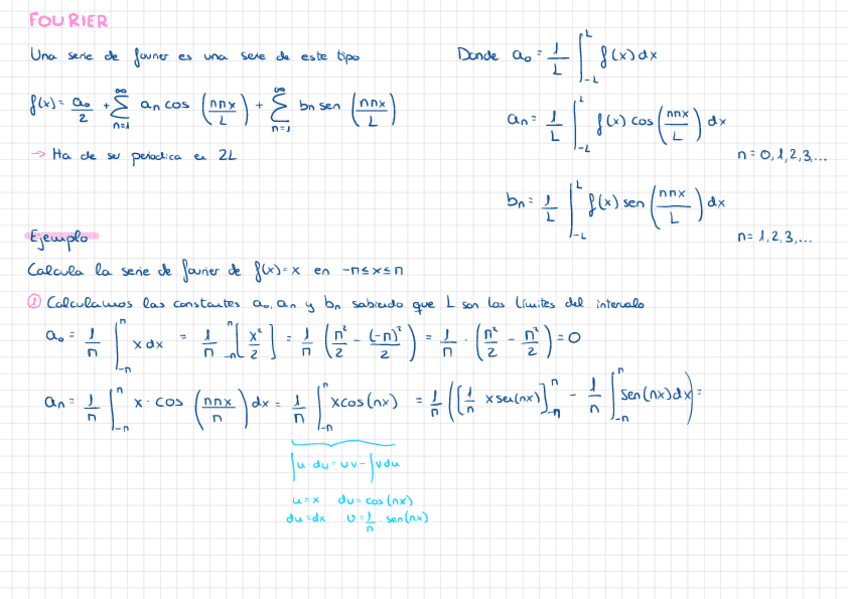 FOURIER
Una serie de fourier es una serie de este tipo
f(x) = a₀/2 + ∑_{n=1}^{∞} aₙ cos (nπx/L) + ∑_{n=1}^{∞} bₙ sen (nπx/L)
→ Ha de ser periodica en 2L
Donde a₀ = 1/L ∫_{-L}^{L} f(x) dx
aₙ = 1/L ∫_{-L}^{L} f(x) cos (nπx/L) dx
n = 0, 1, 2, 3, ...
bₙ = 1/L ∫_{-L}^{L} f(x) sen (nπx/L) dx
n = 1, 2, 3, ...
Ejemplo
Calcula la serie de fourier de f(x) = x en -π ≤ x ≤ π
① Calculamos las constantes a₀, aₙ y bₙ sabiendo que L son los límites del intervalo
a₀ = 1/π ∫_{-π}^{π} x dx = 1/π _{-π}^{π}[x²/2] = 1/π (π²/2 - (-π)²/2) = 1/π · (π²/2 - π²/2) = 0
aₙ = 1/π ∫_{-π}^{π} x · cos (nπx/π) dx = 1/π ∫_{-π}^{π} x cos(nx) = 1/π ([1/n x sen(nx)]_{-π}^{π} - 1/n ∫_{-π}^{π} sen(nx) dx) =
∫u · dv = uv - ∫v du
u = x dv = cos(nx)
du = dx v = 1/n · sen(nx)